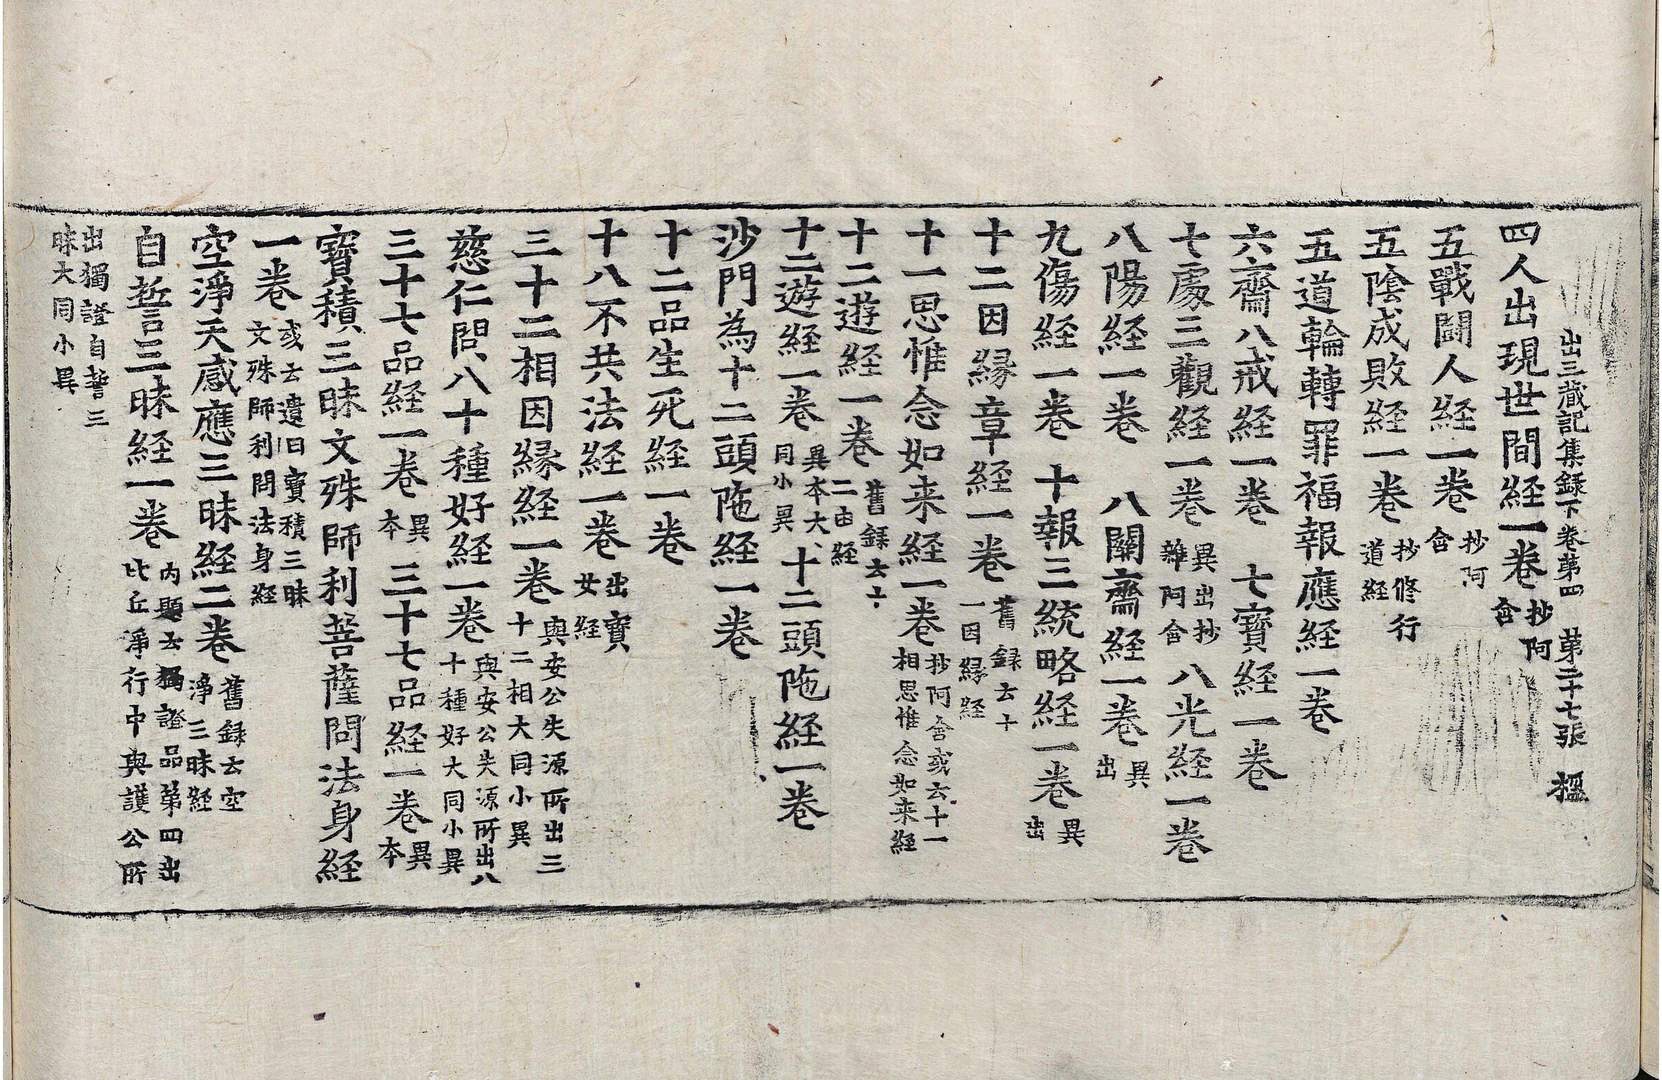 出三藏記集錄下卷第四 第三十七張 榲
四人出現世間経一卷 抄阿含
五戰鬪人経一卷 抄阿含
五陰成敗経一卷 抄修行道経
五道輪轉罪福報應経一卷
六齋八戒経一卷 七寶経一卷
七處三觀経一卷 異出抄雜阿含 八光経一卷
八陽経一卷 八關齋経一卷 異出
九傷経一卷 十報三統略経一卷 異出
十二因縁章経一卷 舊録云十一因縁経
十一思惟念如来経一卷 抄阿含或云十一相思惟念如来経
十二遊経一卷 舊録云十二由経
十二遊経一卷 異本大同小異 十二頭陁経一卷
沙門為十二頭陁経一卷
十二品生死経一卷
十八不共法経一卷 出寶女経
三十二相因縁経一卷 與安公失源所出三十二相大同小異
慈仁問八十種好経一卷 與安公失源所出八十種好大同小異
三十七品経一卷 異本 三十七品経一卷 異本
寶積三昧文殊師利菩薩問法身経
一卷 或云遺曰寶積三昧文殊師利問法身経
空淨天感應三昧経二卷 舊録云空淨三昧経
自誓三昧経一卷 內題云獨證品第四出比丘淨行中與護公所
出獨證自誓三昧大同小異